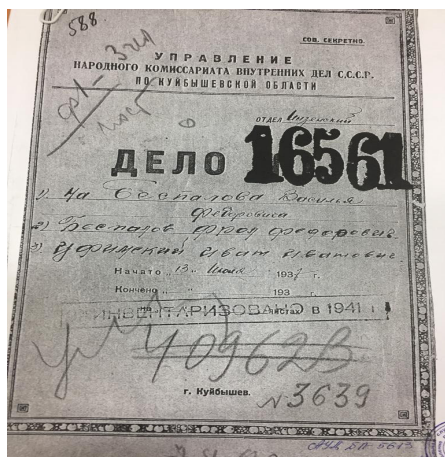 588
СОВ. СЕКРЕТНО.
УПРАВЛЕНИЕ
НАРОДНОГО КОМИССАРИАТА ВНУТРЕННИХ ДЕЛ С.С.С.Р.
ПО КУЙБЫШЕВСКОЙ ОБЛАСТИ
ОТДЕЛ
ДЕЛО 16561
1) На Беспалова Василья
Федоровича
2) Беспалов Фрол Федорович
3) Уфимский Иван Иванович
Начато „13“ Июля 1937 г.
Кончено „ “ 193 г.
На листах
ИНВЕНТАРИЗОВАНО в 1941 г.
409623
г. Куйбышев.
N 3639